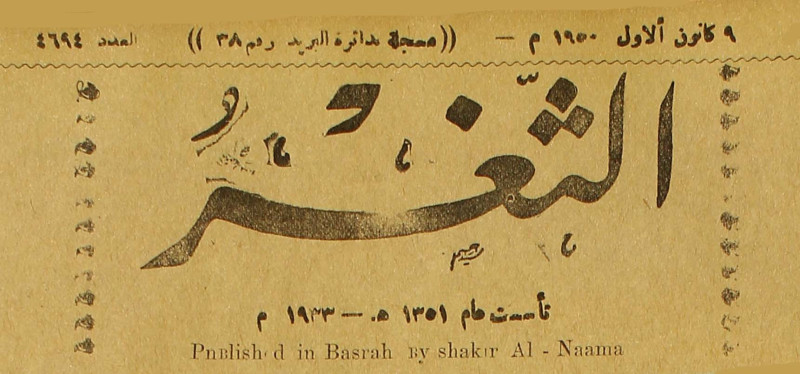 ٩ كانون ألاول ١٩٥٠ م — ((مسجلة بدائرة البريد رقم ٣٨)) العدد ٤٦٩٤
الثغر
تأسست عام ١٣٥١ ه. — ١٩٣٣ م
Published in Basrah By shakir Al - Naama